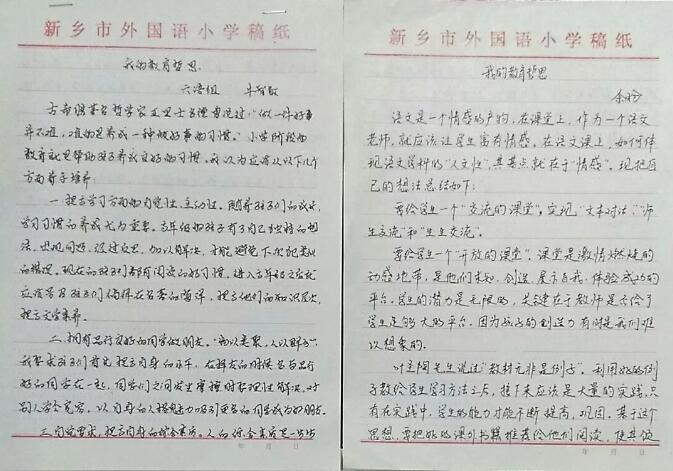 新乡市外国语小学稿纸
我的教育哲思
六语组
古希腊著名哲学家亚里士多德曾说过："做一件好事
并不难，难的是养成一种做好事的习惯。"小学阶段的
教育就是帮助孩子养成良好的习惯。我认为应该从以下几个
方面着手培养：
一、提高学习方面的自觉性、主动性。随着孩子们的成长，
学习习惯的养成尤为重要。高年级的孩子有了自己独特的想
法，出现问题，没过反思，加以解决，才能避免下次犯类似
的错误。现在的孩子们都有阅读的好习惯，进入高年级之后就
应该带孩子们徜徉在名著的海洋，提高他们的知识层次，
提高文学素养。
二、拥有品行良好的同学做朋友。"物以类聚，人以群分"，
我要求孩子们首先提高自身的水平，在择友的时候名与品行
好的同学在一起，同学们之间发生摩擦时要理性解决，对
别人学会宽容，以自身的人格魅力吸引更多的同学成为好朋友。
三、自觉要求，提高自身的综合素质。人的综合素质是一步步
年 月 日
新乡市外国语小学稿纸
我的教育哲思
语文是一个情感的产物，在课堂上，作为一个语文
老师，就应该让学生富有情感。在语文课上，如何体
现语文学科的"人文性"，其基点就在于"情感"。现把自
己的想法总结如下：
要给学生一个"交流的课堂"，实现"文本对话"、"师
生交流"和"生生交流"。
要给学生一个"开放的课堂"。课堂是激情燃烧的
动感地带，是他们求知、创造、展示自我、体验成功的
平台。学生的潜力是无限的，关键在于教师是否给了
学生足够大的平台。因为孩子的创造力有时是我们难
以想象的。
叶圣陶先生说过"教材无非是例子"。利用好的例
子教给学生学习方法之后，接下来应该是大量的实践，只
有在实践中，学生的能力才能不断提高、巩固。基于这个
思想，要把好的课外书籍推荐给他们阅读，使其饭
年 月 日